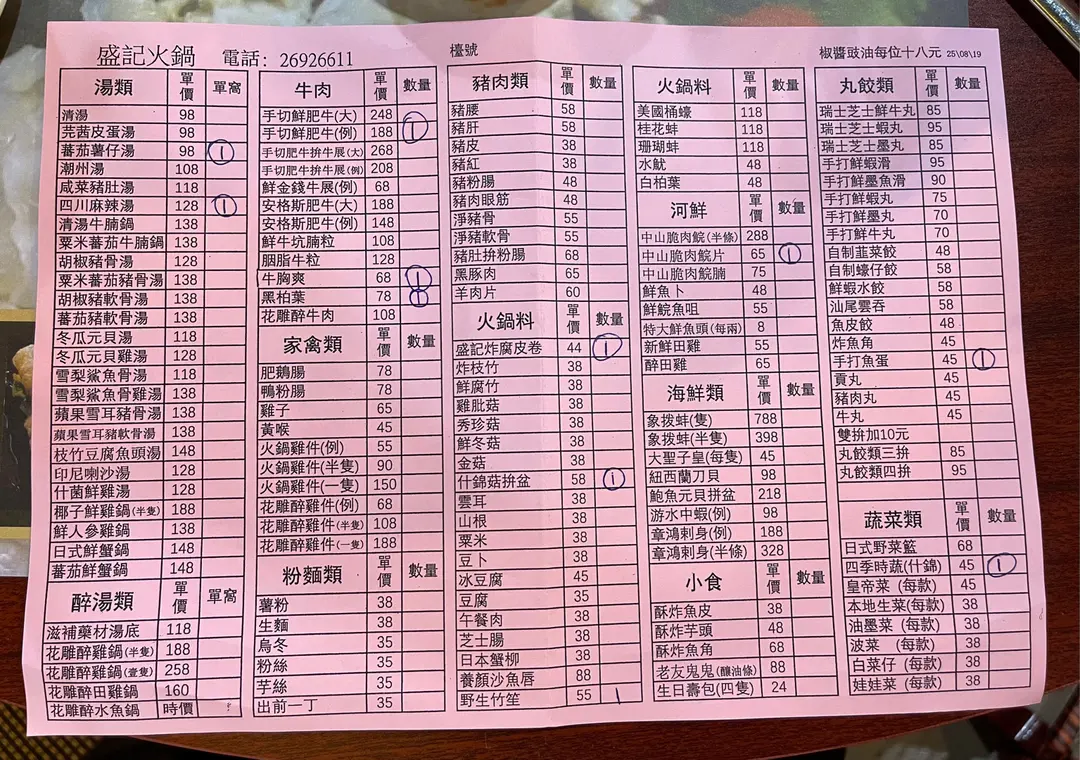 盛記火鍋 電話：26926611
檯號
椒醬豉油每位十八元 25\08\19
湯類 單價 單窩
清湯 98
芫茜皮蛋湯 98
蕃茄薯仔湯 98 1
潮州湯 108
咸菜豬肚湯 118
四川麻辣湯 128 1
清湯牛腩鍋 138
粟米蕃茄牛腩鍋 138
胡椒豬骨湯 128
粟米蕃茄豬骨湯 138
胡椒豬軟骨湯 138
蕃茄豬軟骨湯 138
冬瓜元貝湯 118
冬瓜元貝雞湯 128
雪梨鯊魚骨湯 118
雪梨鯊魚骨雞湯 138
蘋果雪耳豬骨湯 138
蘋果雪耳豬軟骨湯 138
枝竹豆腐魚頭湯 148
印尼喇沙湯 128
什菌鮮雞湯 128
椰子鮮雞鍋(半隻) 188
鮮人參雞鍋 138
日式鮮蟹鍋 148
蕃茄鮮蟹鍋 148
醉湯類 單價 單窩
滋補藥材湯底 118
花雕醉雞鍋(半隻) 188
花雕醉雞鍋(壹隻) 258
花雕醉田雞鍋 160
花雕醉水魚鍋 時價
牛肉 單價 數量
手切鮮肥牛(大) 248
手切鮮肥牛(例) 188 1
手切肥牛拚牛展(大) 268
手切肥牛拚牛展(例) 208
鮮金錢牛展(例) 68
安格斯肥牛(大) 188
安格斯肥牛(例) 148
鮮牛坑腩粒 108
胭脂牛粒 128
牛胸爽 68 1
黑柏葉 78 1
花雕醉牛肉 108
家禽類 單價 數量
肥鵝腸 78
鴨粉腸 78
雞子 65
黃喉 45
火鍋雞件(例) 55
火鍋雞件(半隻) 90
火鍋雞件(一隻) 150
花雕醉雞件(例) 68
花雕醉雞件(半隻) 108
花雕醉雞件(一隻) 188
粉麵類 單價 數量
薯粉 38
生麵 38
烏冬 35
粉絲 35
芋絲 35
出前一丁 35
豬肉類 單價 數量
豬腰 58
豬肝 58
豬皮 38
豬紅 38
豬粉腸 48
豬肉眼筋 48
淨豬骨 55
淨豬軟骨 55
豬肚拚粉腸 68
黑豚肉 65
羊肉片 60
火鍋料 單價 數量
盛記炸腐皮卷 44 1
炸枝竹 38
鮮腐竹 38
雞肶菇 38
秀珍菇 38
鮮冬菇 38
金菇 38
什錦菇拚盆 58 1
雲耳 38
山根 38
粟米 38
豆卜 38
冰豆腐 45
豆腐 35
午餐肉 38
芝士腸 38
日本蟹柳 38
養顏沙魚唇 88
野生竹笙 55 1
火鍋料 單價 數量
美國桶蠔 118
桂花蚌 118
珊瑚蚌 118
水魷 48
白柏葉 48
河鮮 單價 數量
中山脆肉鯇(半條) 288
中山脆肉鯇片 65 1
中山脆肉鯇腩 75
鮮魚卜 48
鮮鯇魚咀 55
特大鮮魚頭(每兩) 8
新鮮田雞 55
醉田雞 65
海鮮類 單價 數量
象拔蚌(隻) 788
象拔蚌(半隻) 398
大聖子皇(每隻) 45
紐西蘭刀貝 98
鮑魚元貝拼盆 218
游水中蝦(例) 98
章鴻刺身(例) 188
章鴻刺身(半條) 328
小食 單價 數量
酥炸魚皮 38
酥炸芋頭 48
酥炸魚角 68
老友鬼鬼(釀油條) 88
生日壽包(四隻) 24
丸餃類 單價 數量
瑞士芝士鮮牛丸 85
瑞士芝士蝦丸 95
瑞士芝士墨丸 85
手打鮮蝦滑 95
手打鮮墨魚滑 90
手打鮮蝦丸 75
手打鮮墨丸 70
手打鮮牛丸 70
自制韮菜餃 48
自制蠔仔餃 58
鮮蝦水餃 58
汕尾雲吞 58
魚皮餃 48
炸魚角 45
手打魚蛋 45 1
貢丸 45
豬肉丸 45
牛丸 45
雙拚加10元
丸餃類三拚 85
丸餃類四拚 95
蔬菜類 單價 數量
日式野菜籃 68
四季時蔬(什錦) 45 1
皇帝菜 (每款) 45
本地生菜(每款) 38
油墨菜 (每款) 38
波菜 (每款) 38
白菜仔 (每款) 38
娃娃菜 (每款) 38